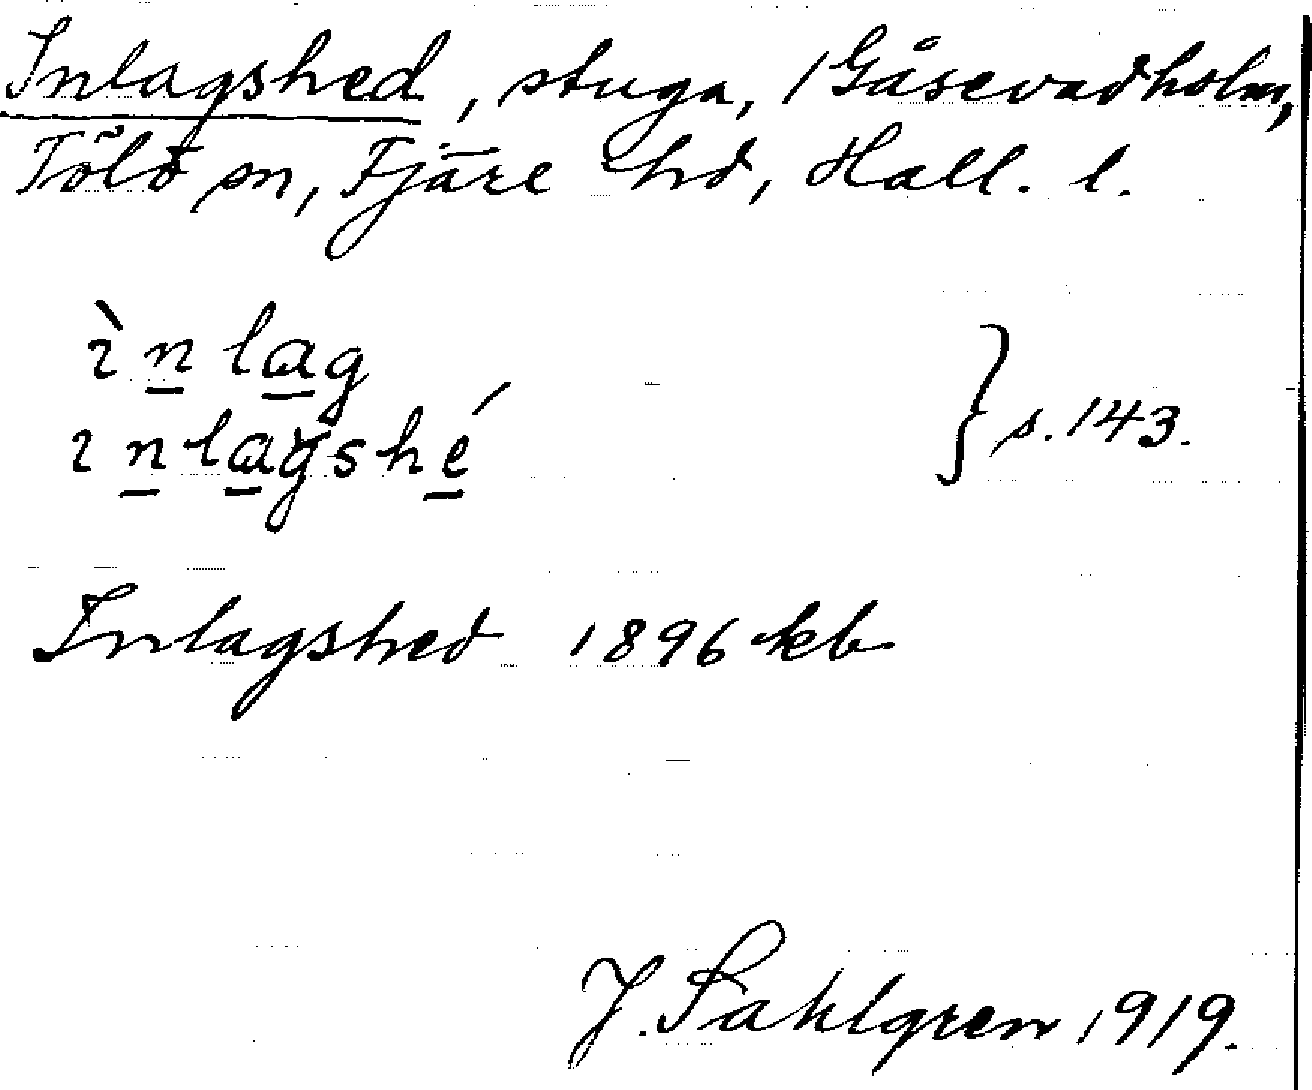 Inlagshed, stuga, 1 Gåsevadholm,
Tölö sn, Fjäre hd, Hall. l.
ìnlag
inlagshé } s. 143.
Inlagshed 1896 kb
J. Sahlgren 1919.